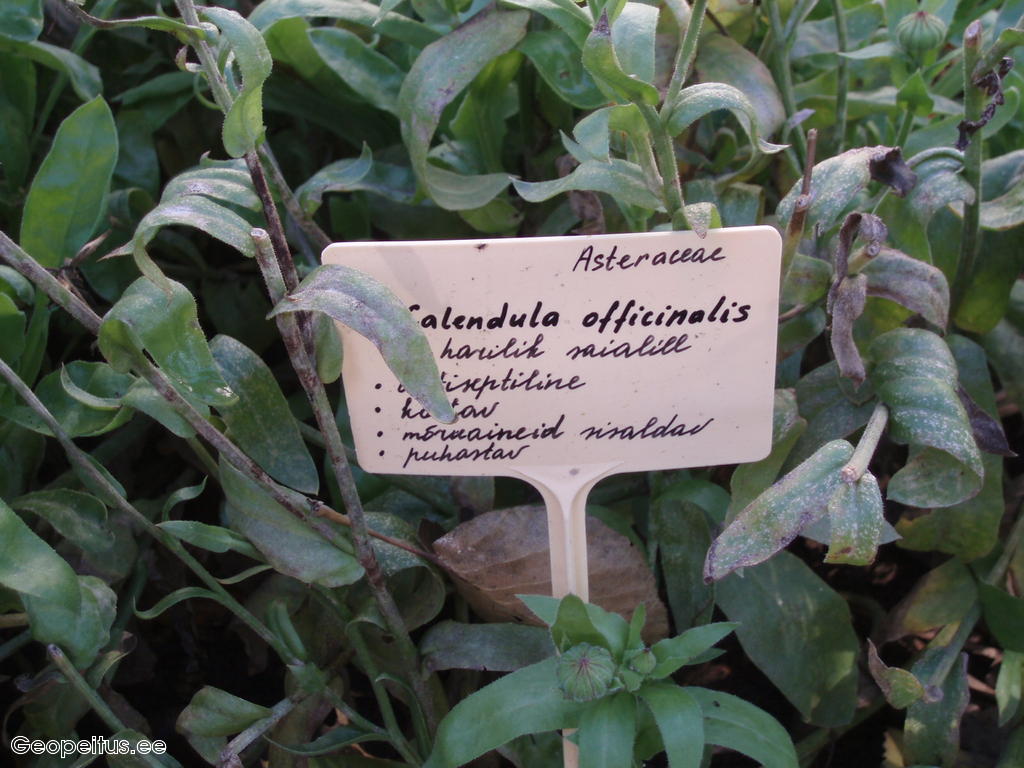 Asteraceae
Calendula officinalis
harilik saialill
• antiseptiline
• kootav
• mõruaineid sisaldav
• puhastav
Geopeitus.ee